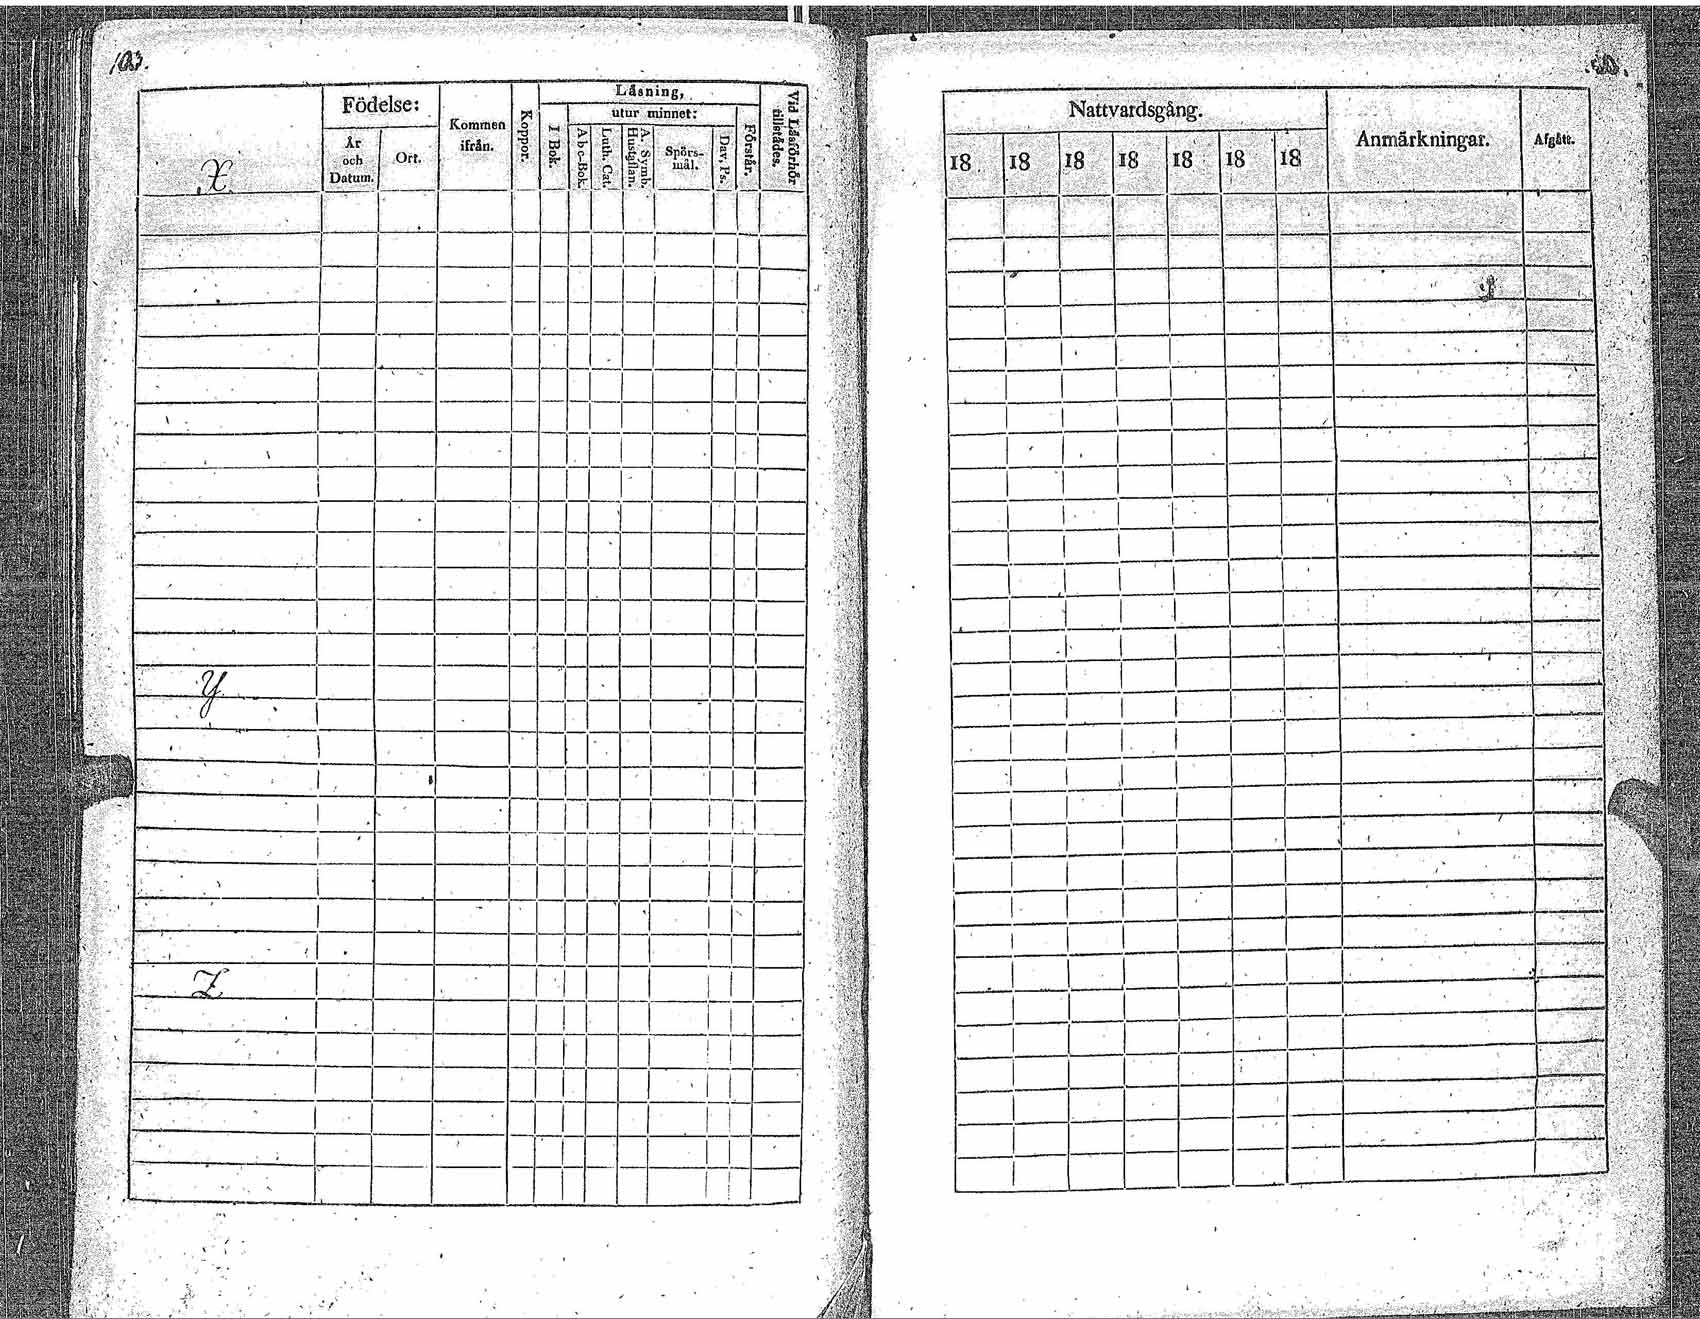 103.
X
Födelse:
År
och
Datum.
Ort.
Kommen
ifrån.
Koppor.
Läsning,
I Bok.
utur minnet:
A b c-Bok.
Luth. Cat.
A. Symb.
Hustaflan.
Spörs-
mål.
Dav. Ps.
Förstår.
Vid Läsförhör
tillstädes.
Y
Z
Nattvardsgång.
18 18 18 18 18 18 18
Anmärkningar.
Afgått.